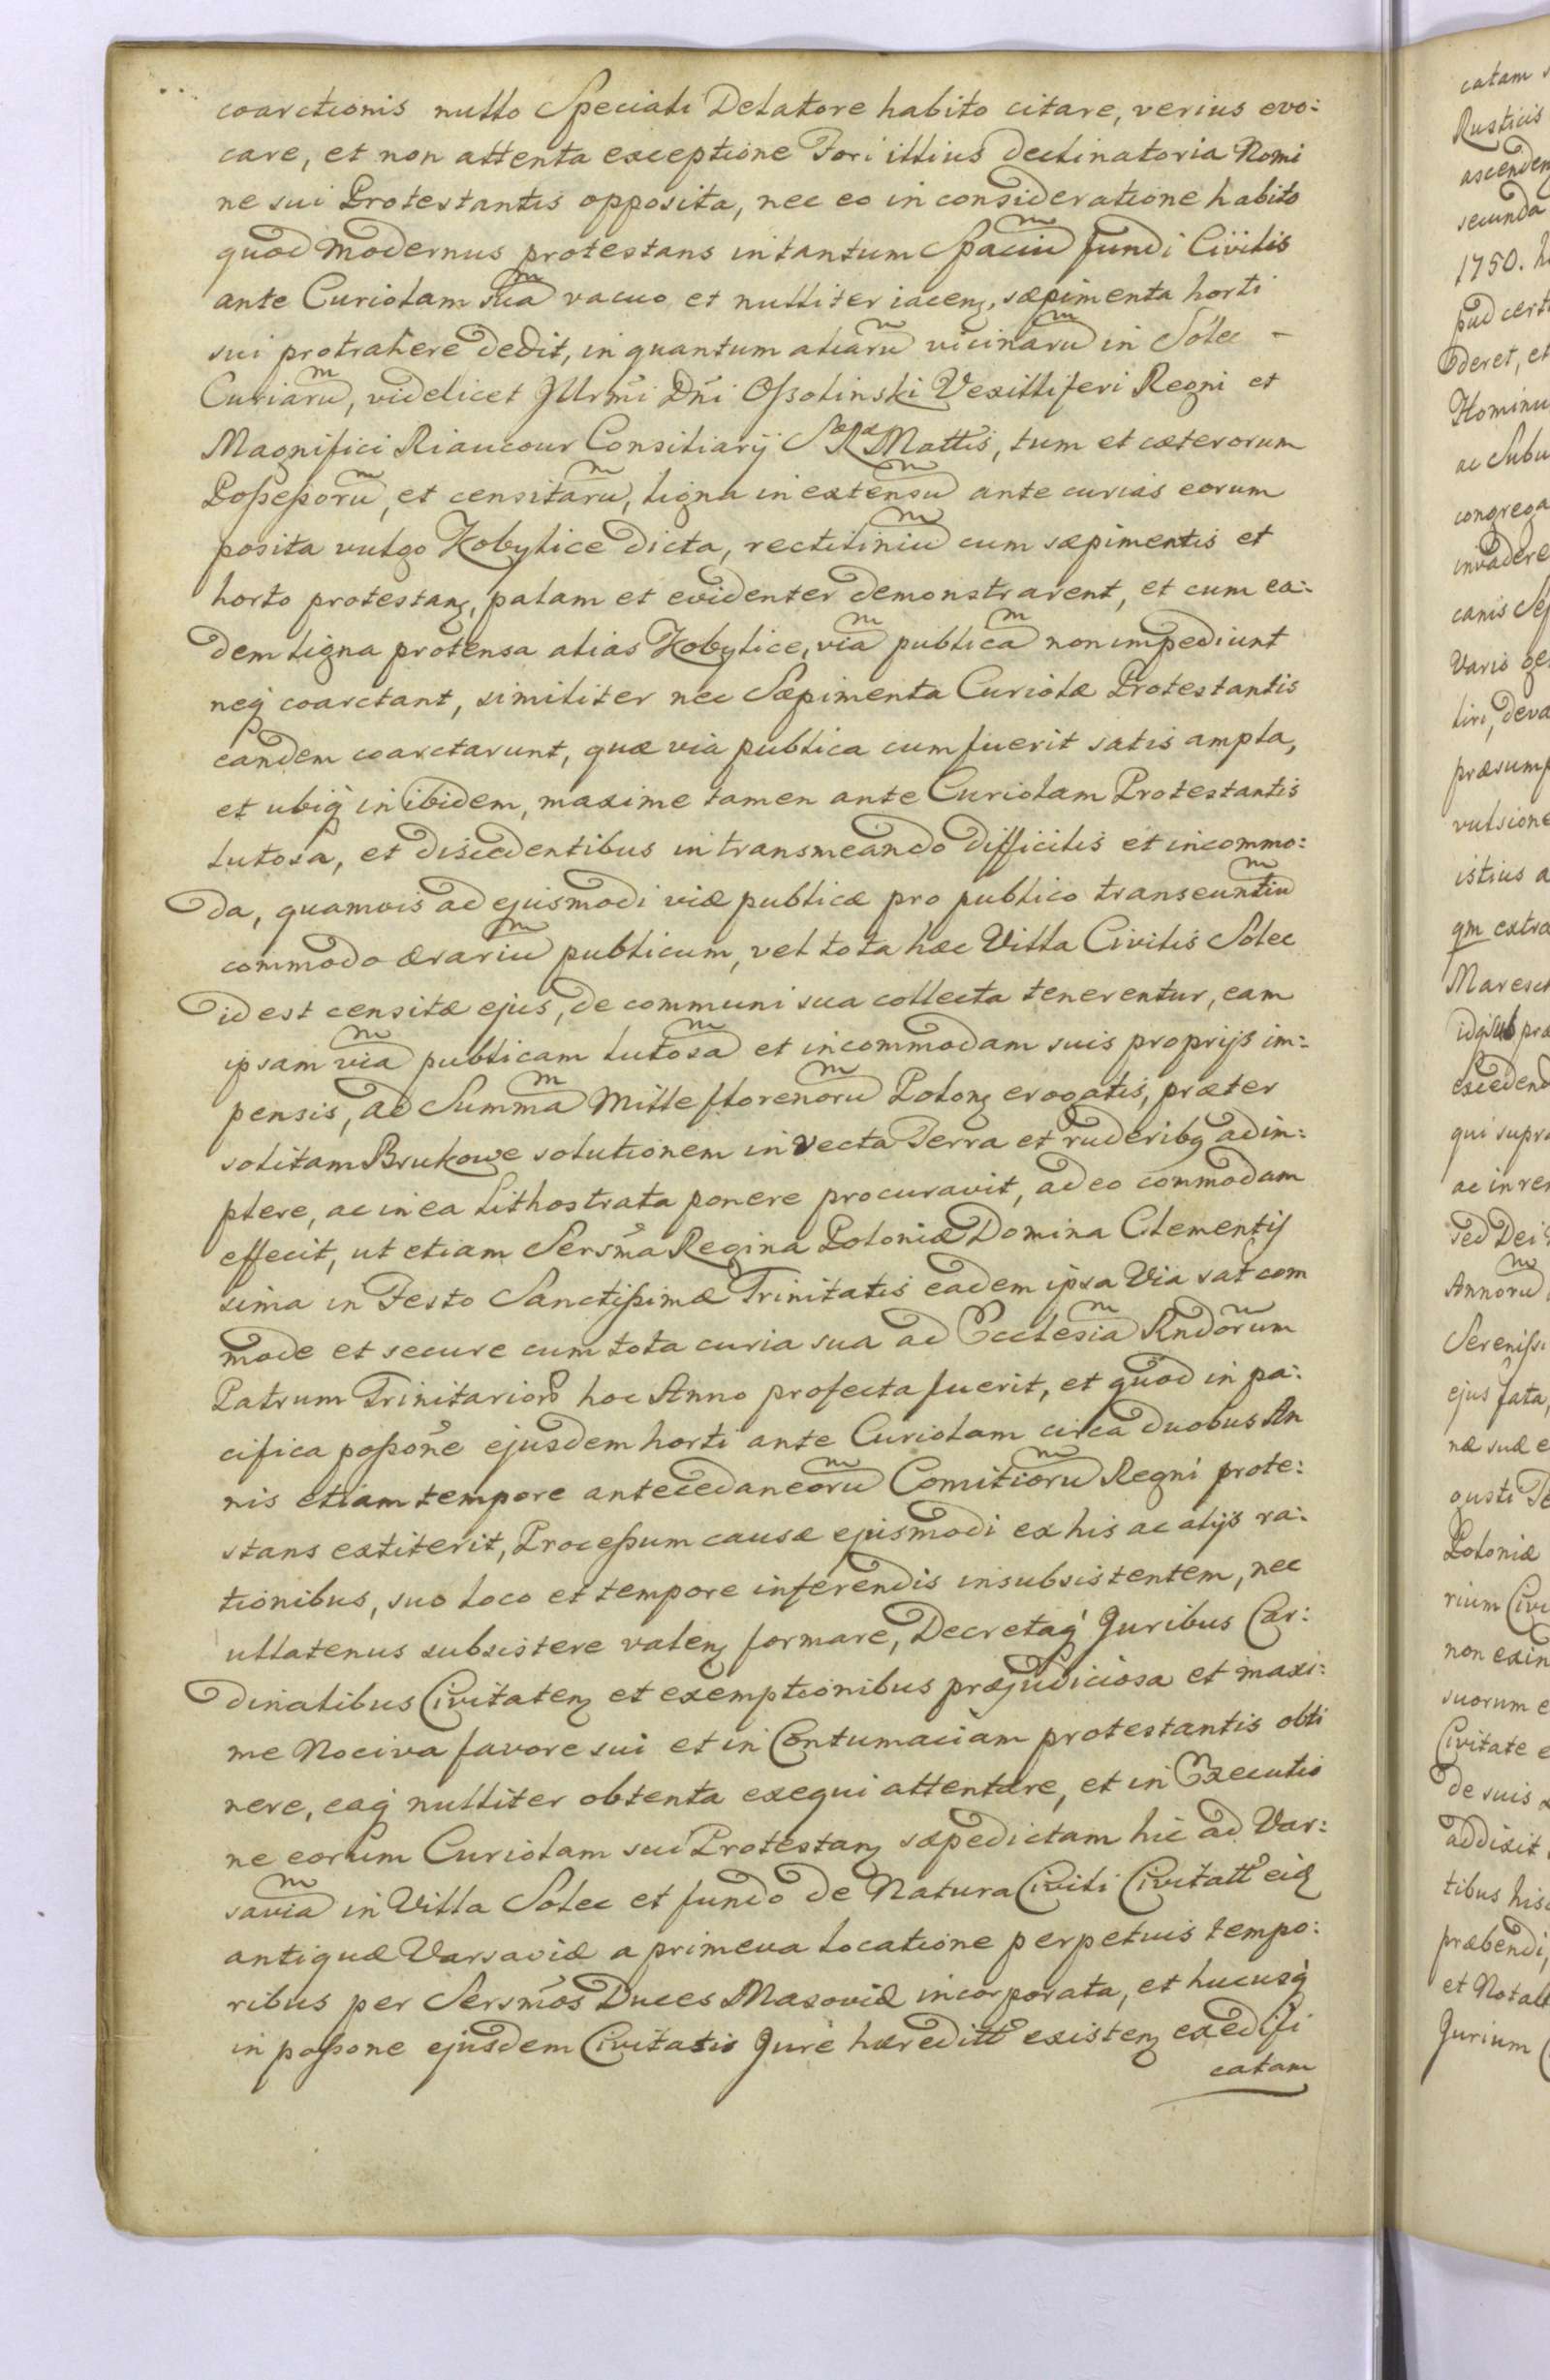 coarctionis nullo Speciali Delatore habito citare, verius evo:
care, et non attenta exceptione Fori illius declinatoria Nomi
ne sui Protestantis opposita, nec eo in consideratione habito
quod modernus protestans in tantum Spaciũ fundi Civilis
ante Curiolam suã vacuo et nulliter iacenɜ, sæpimenta horti
sui protrahere dedit, in quantum aliarũ vicinarũ in Solec -
Curiarũ, videlicet Jllrmi Dni Ossolinski Vexilliferi Regni et
Magnifici Riaucour Consiliarij SRæ Mattis, tum et cæterorum
Poßeßorũ, et censitarũ, ligna in extensũ ante curias eorum
posita vulgo Kobylice dicta, rectiliniũ cum sæpimentis et
horto protestanɜ, palam et evidenter demonstrarent, et cum ea:
dem ligna protensa alias Kobylice, viã publicã non impediunt
neq́ coarctant, similiter nec Sæpimenta Curiolæ Protestantis
eandem coarctarunt, quæ via publica cum fuerit satis ampla,
et ubiq́ in ibidem, maxime tamen ante Curiolam Protestantis
lutosa, et discedentibus in transmeando difficilis et incommo:
da, quamvis ad ejusmodi viæ publicæ pro publico transeuntiũ
commodo ærariũ publicum, vel tota hæc Villa Civilis Solec
id est censitæ ejus, de communi sua collecta tenerentur, eam
ipsam viã publicam lutosã et incommodam suis proprijs im:
pensis, ad Summã Mille florenorũ Polonɜ erogatis, præter
solitam Brukowe solutionem invecta Terra et ruderibɜ adim:
plere, ac in ea Lithostrata ponere procuravit, adeo commodam
effecit, ut etiam Sersma Regina Poloniæ Domina Clementiß
sima in Festo Sanctißimæ Trinitatis eadem ipsa Via sat com
mode et secure cum tota curia sua ad Ecclesiã Rndorum
Patrum Trinitarior hoc Anno profecta fuerit, et quod in pa:
cifica poßone ejusdem horti ante Curiolam circa duobus An
nis etiam tempore antecedaneorũ Comitiorũ Regni prote:
stans extiterit, Proceßum causæ ejusmodi ex his ac alijs ra:
tionibus, suo loco et tempore inferendis insubsistentem, nec
ullatenus subsistere valenɜ formare, Decretaq́ Juribus Car:
dinalibus Civitatenɜ et exemptionibus præjudiciosa et maxi:
me Nociva favore sui et in Contumaciam protestantis obti
nere, eaq́ nulliter obtenta exequi attentare, et in Executio
ne eorum Curiolam sui Protestanɜ sæpedictam hic ad Var:
saviã in Villa Solec et fundo de Natura Civili Civitatt eid
antiquæ Varsaviæ a primeva locatione perpetuis tempo:
ribus per Sersmos Duces Masoviæ incorporata, et hucusq́
in poßone ejusdem Civitatis Jure hæreditt existenɜ exedifi
catam
catam
Rusticis
ascenden
secunda
1750.
pud cert
deret, et
Hominu
ac Subu
congrega
invadere
canis Sej
Vario ge
liri, deva
præsump
vulsione
istius a
qm extra
Maresch
pra
excedend
qui supra
ac in rer
sed Dei
Annorũ
Sereniss
ejus fata,
næ suæ e
gusti
Poloniæ
rium Civi
non exin
suorum e
Civitate e
de suis
addixit
tibus hisc
præbendi,
et Notab
Jurium